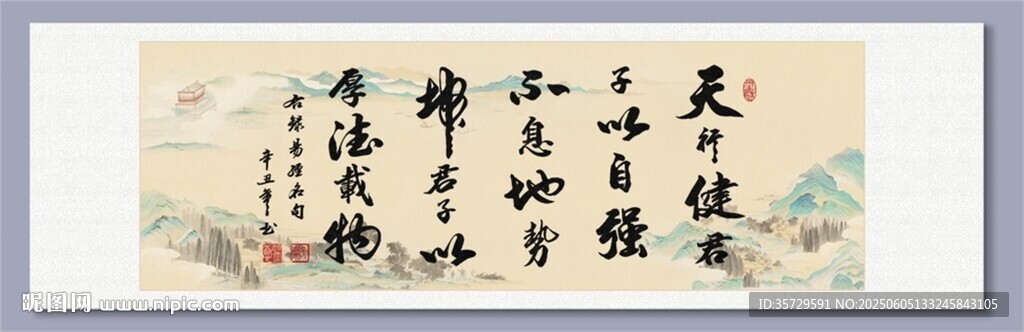 天行健君
子以自强
不息地势
坤君子以
厚德載物
右録易經名句
辛丑年书
昵图网 www.nipic.com
ID:35729591 NO:20250605133245843105